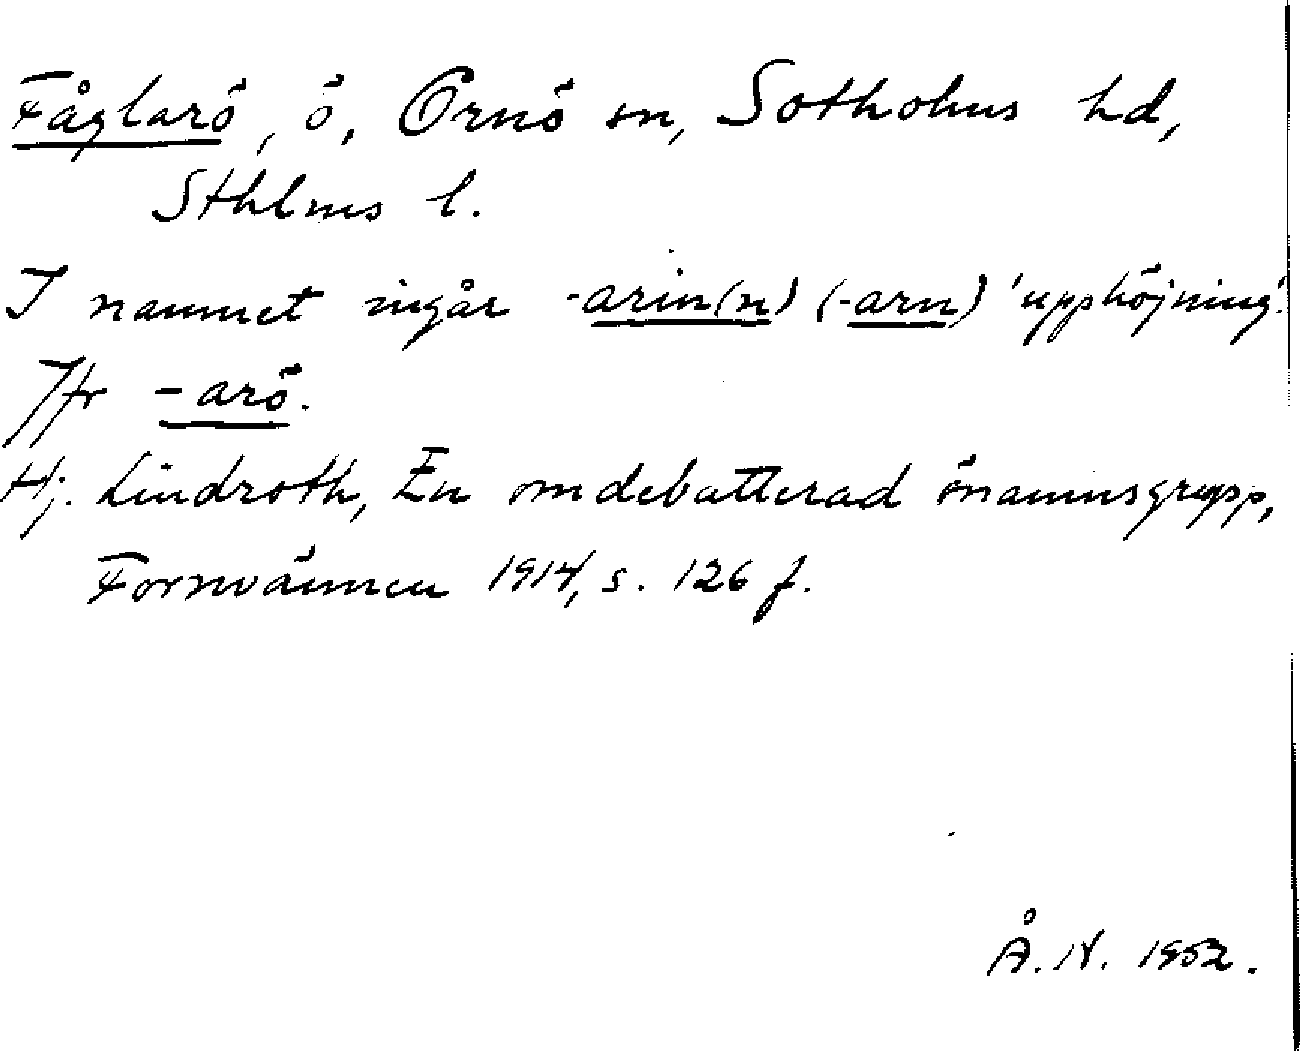 Fåglarö, ö, Ornö sn, Sotholms hd,
Sthlms l.
I namnet ingår -arin(n) (-arn) 'upphöjning'.
Jfr -arö.
Hj. Lindroth, En omdebatterad önamnsgrupp,
Fornvännen 1914, s. 126 f.
Å. N. 1952.